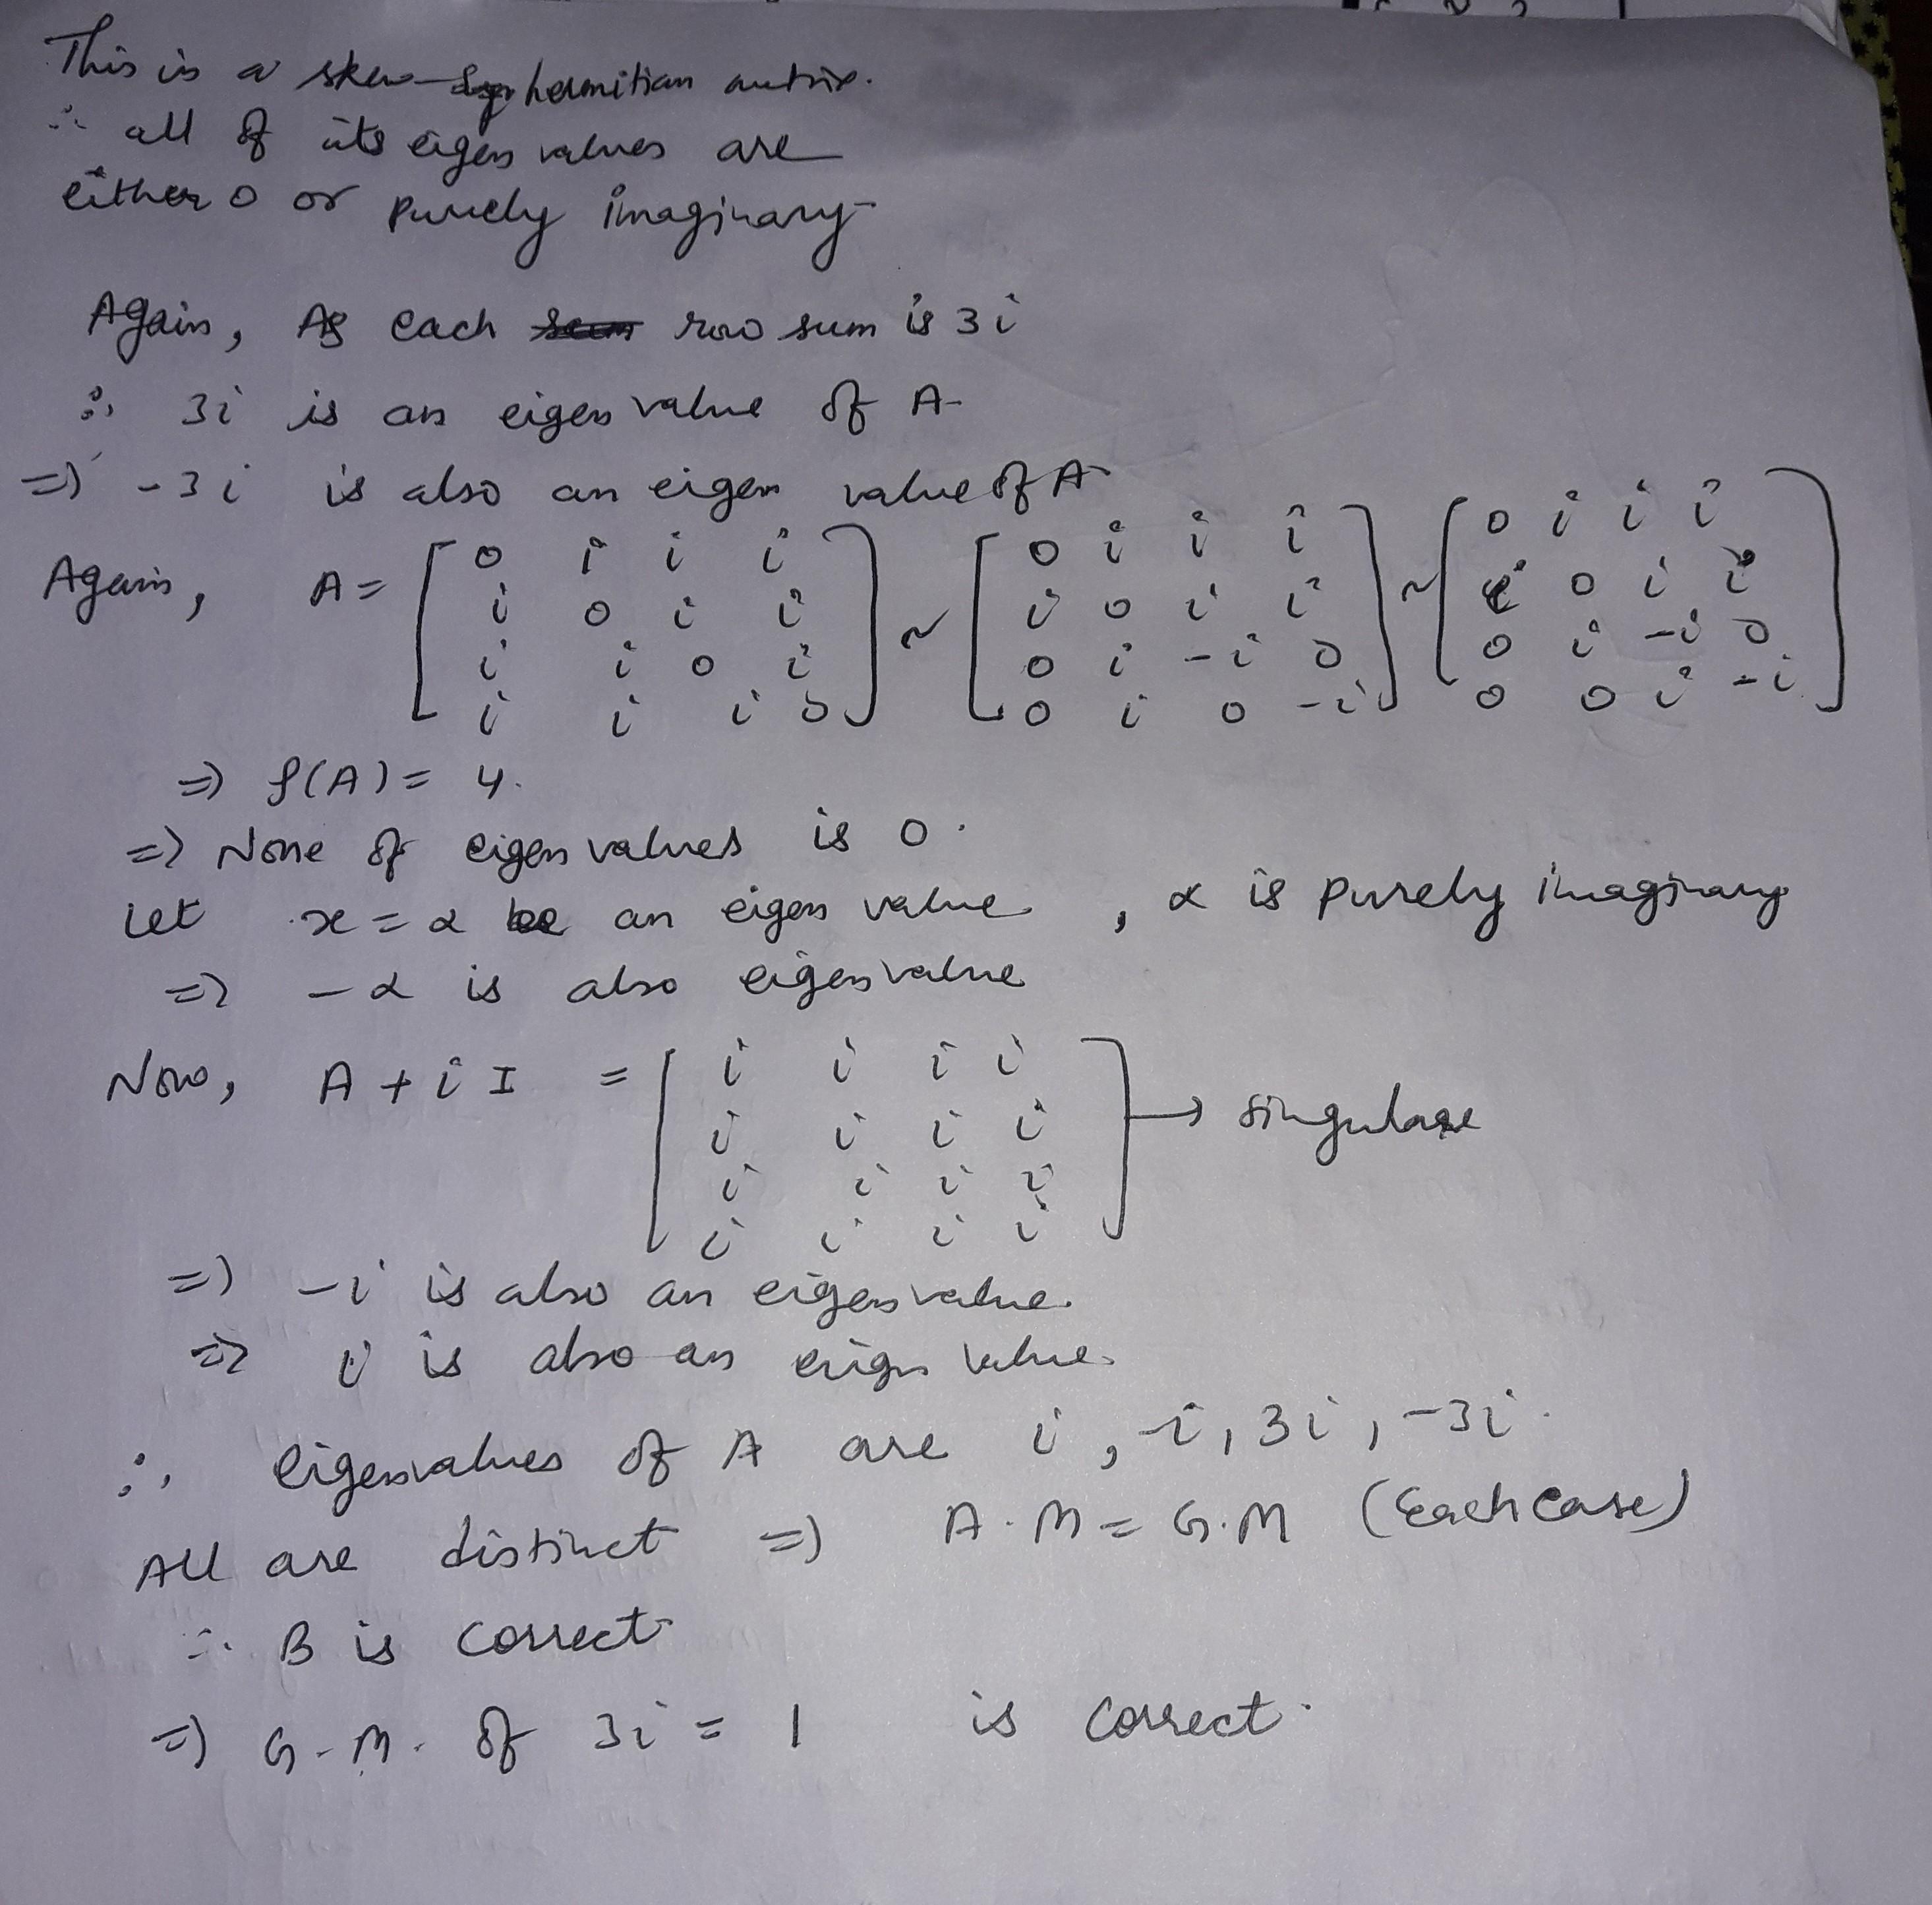 This is a skew-hermitian matrix.
∴ all of its eigen values are
either 0 or purely imaginary
Again, As each row sum is 3i
∴ 3i is an eigen value of A
=> -3i is also an eigen value of A
Again, A = [0 i i i; i 0 i i; i i 0 i; i i i 0] ~ [0 i i i; i 0 i i; 0 i -i 0; 0 i 0 -i] ~ [0 i i i; i 0 i i; 0 i -i 0; 0 0 i -i]
=> ρ(A) = 4.
=> None of eigen values is 0.
Let x = α be an eigen value, α is purely imaginary
=> -α is also eigen value
Now, A + i I = [i i i i; i i i i; i i i i; i i i i] → singular
=> -i is also an eigen value.
=> i is also an eign value.
∴ eigenvalues of A are i, -i, 3i, -3i.
All are distinct => A.M = G.M (Each case)
∴ B is correct
=> G.M. of 3i = 1 is correct.